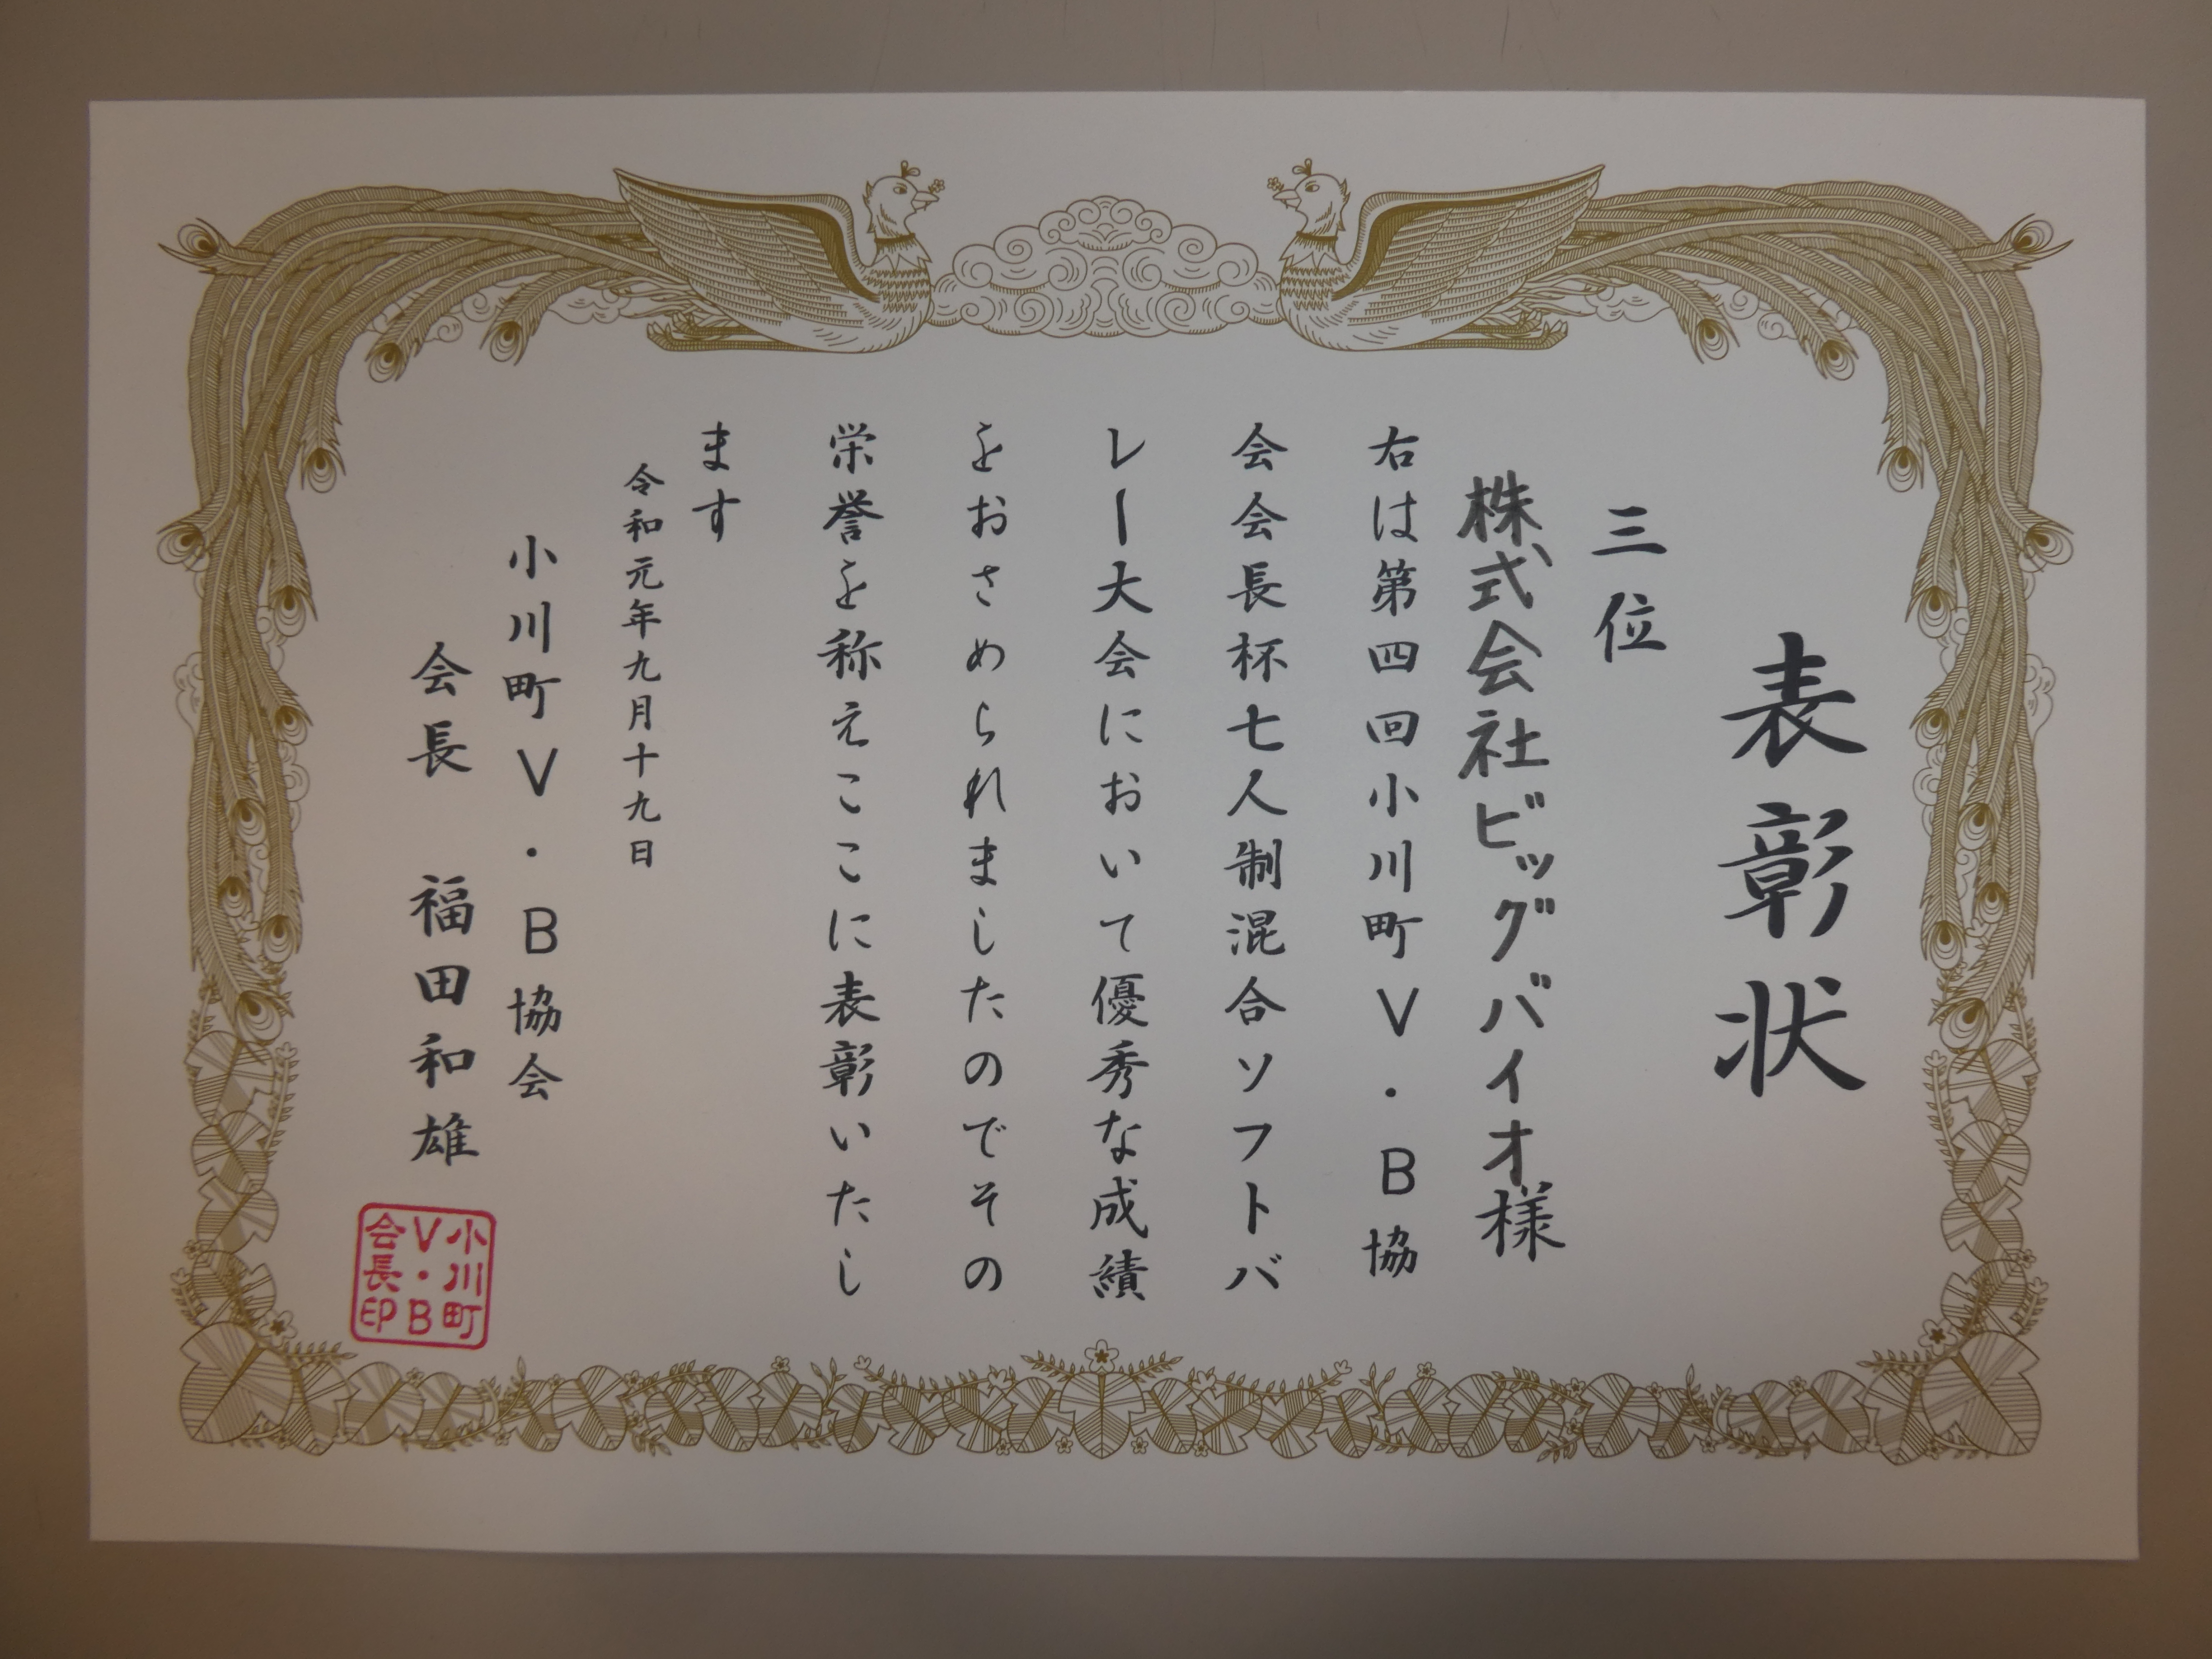 表彰状
三位
株式会社ビッグバイオ様
右は第四回小川町V・B協
会会長杯七人制混合ソフトバ
レー大会において優秀な成績
をおさめられましたのでその
栄誉を称えここに表彰いたし
ます
令和元年九月十九日
小川町V・B協会
会長 福田和雄
小川町
V・B
会長印